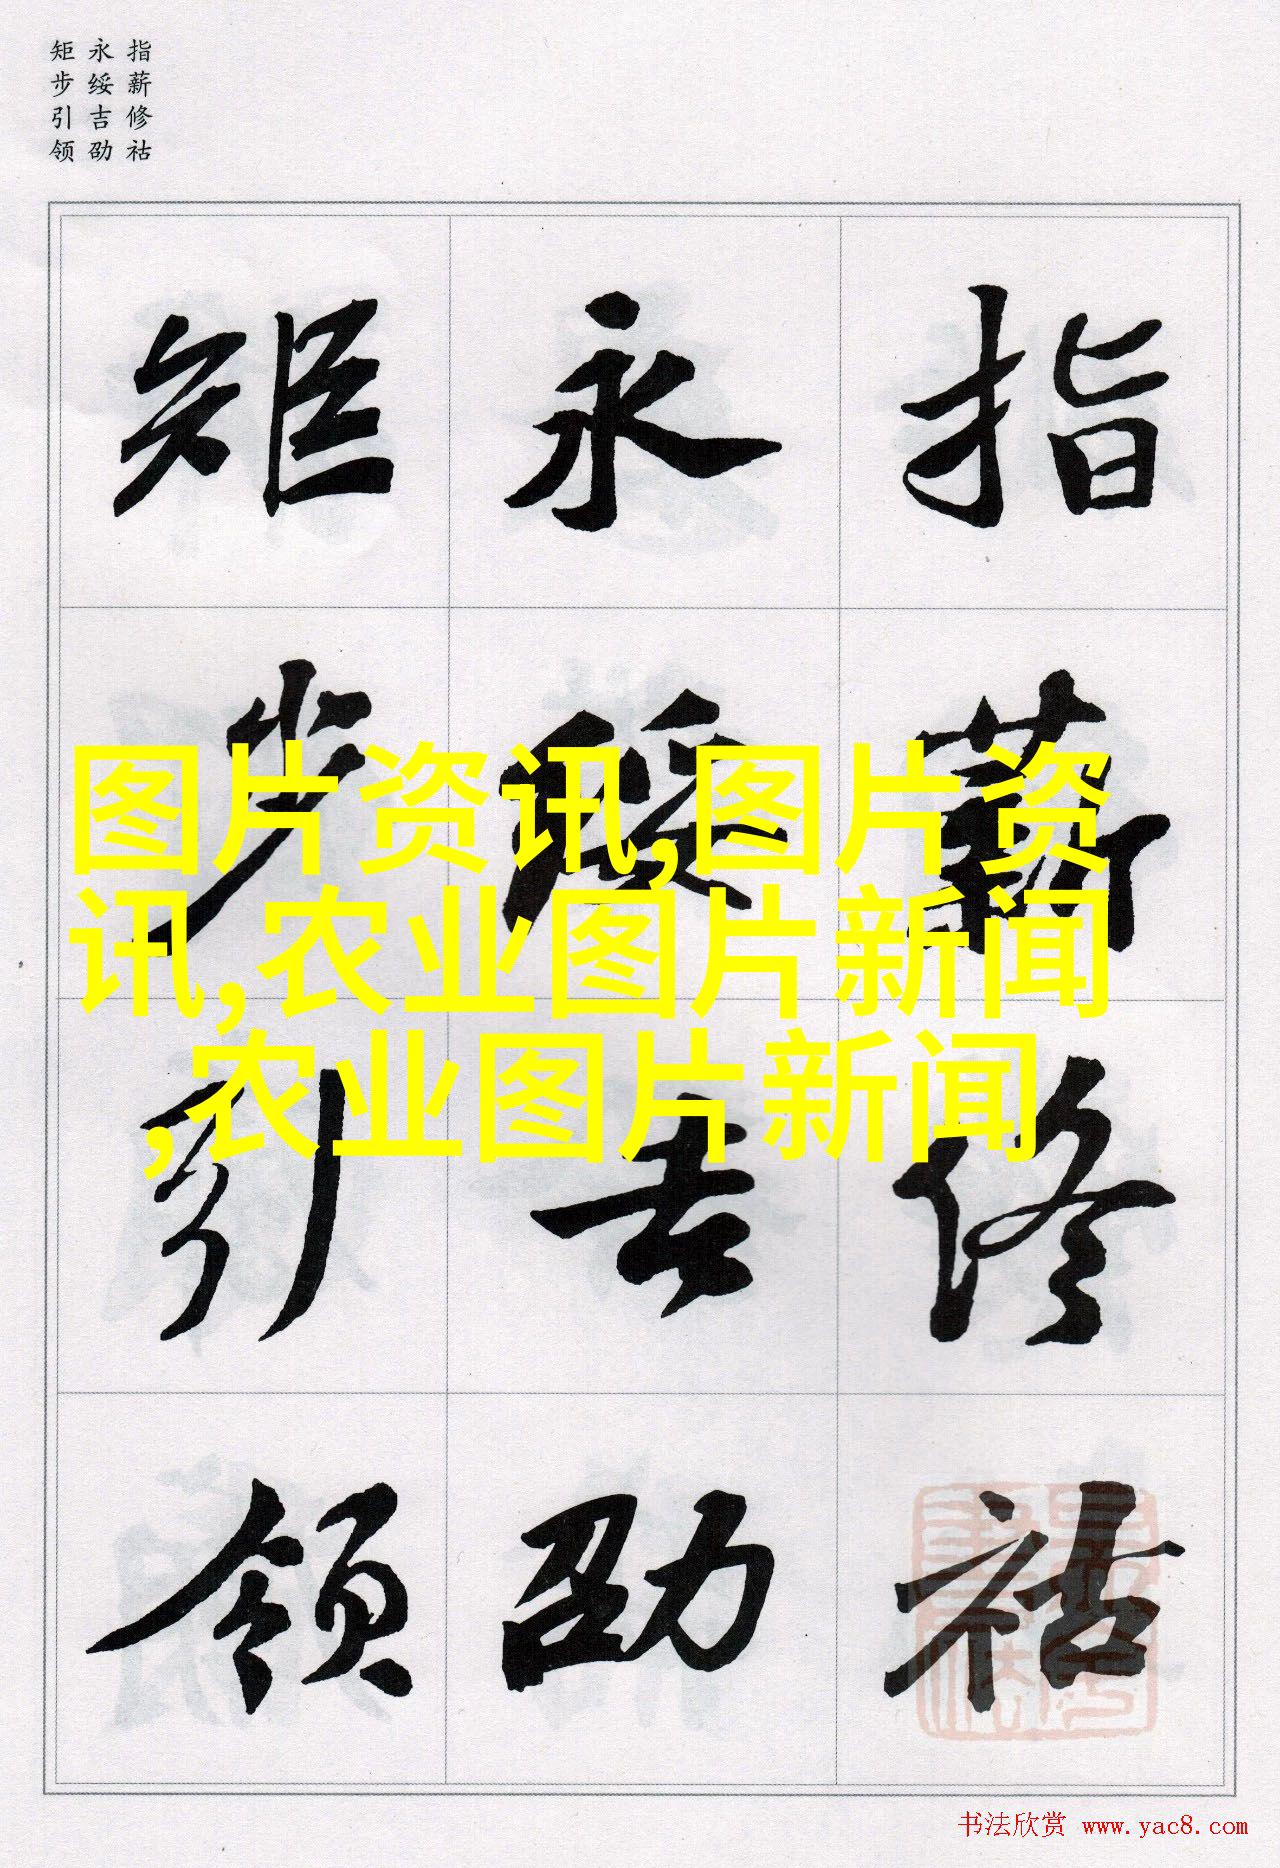 指薪修祜
永绥吉劭
矩步引领
指薪修祜
永绥吉劭
矩步引领
图片资讯,图片资
讯,农业图片新闻
,农业图片新闻
书法欣赏 www.yac8.com